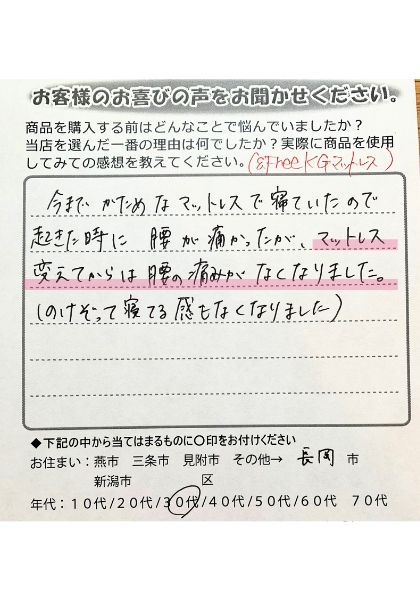 お客様のお喜びの声をお聞かせください。
商品を購入する前はどんなことで悩んでいましたか？
当店を選んだ一番の理由は何でしたか？実際に商品を使用
してみての感想を教えてください。
今まで かためなマットレスで寝ていたので
起きた時に 腰が痛かったが、マットレス
変えてからは腰の痛みがなくなりました。
(のけぞって寝てる感もなくなりました)
◆下記の中から当てはまるものに〇印をお付けください
お住まい：燕市 三条市 見附市 その他→ 長岡 市
新潟市 区
年代：１０代/２０代/３０代/４０代/５０代/６０代 ７０代